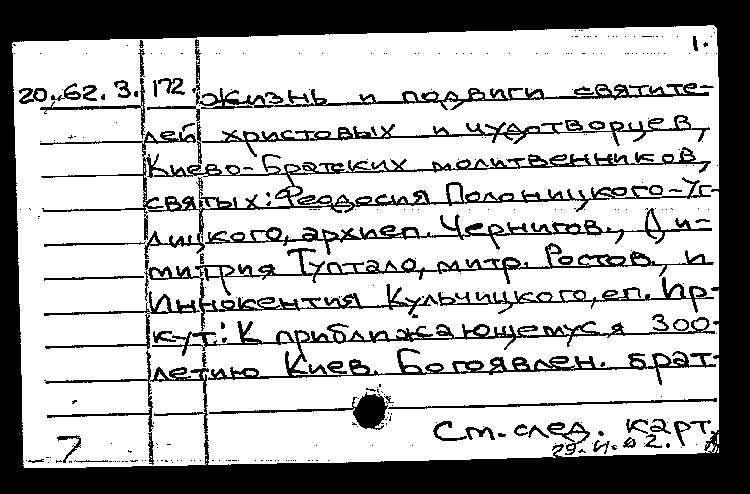 1.
20.62.3.172. Жизнь и подвиги святите-
лей христовых и чудотворцев,
Киево-Братских молитвенников,
святых: Феодосия Полоницкого-Уг-
лицкого, архиеп. Чернигов., Ди-
митрия Туптало, митр. Ростов., и
Иннокентия Кульчицкого, еп. Ир-
кут: К приближающемуся 300-
летию Киев. Богоявлен. брат-
См. след. карт.
7